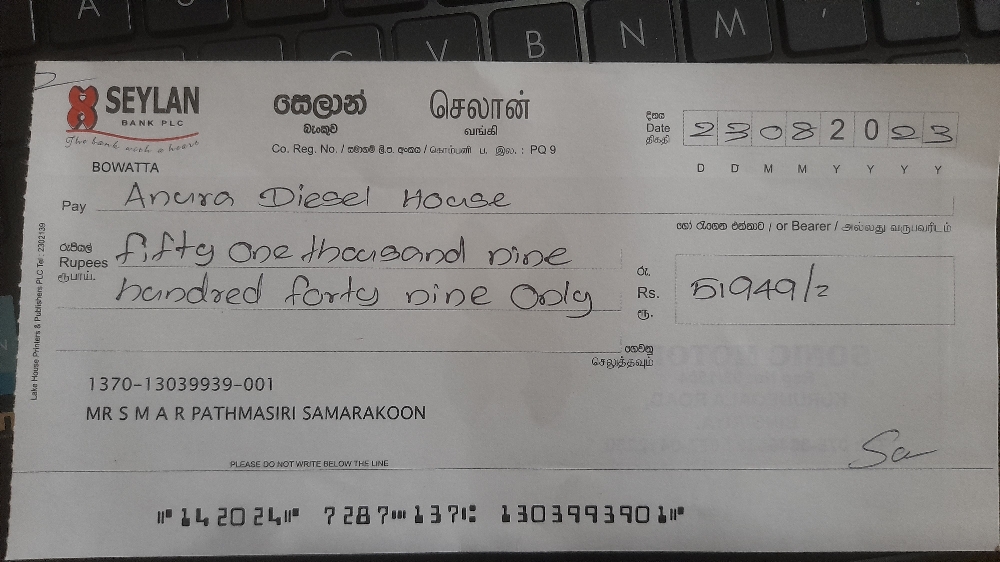 SEYLAN
BANK PLC
The bank with a heart
BOWATTA
සෙලාන්
බැංකුව
செலான்
வங்கி
Co. Reg. No. / සමාගම් ලි.ප. අංකය / கொம்பனி ப. இல. : PQ 9
දිනය
Date
திகதி
23082023
D D M M Y Y Y Y
Pay Anura Diesel House
හෝ රැගෙන එන්නාට / or Bearer / அல்லது வருபவரிடம்
රුපියල්
Rupees
ரூபாய்.
fifty one thousand nine
hundred forty nine Only
රු.
Rs.
ரூ.
51949/=
ගෙවනු
செலுத்தவும்
1370-13039939-001
MR S M A R PATHMASIRI SAMARAKOON
PLEASE DO NOT WRITE BELOW THE LINE
⑈142024⑈ 7287⑉137⑆ 1303993901⑈
Lake House Printers & Publishers PLC Tel: 2302139